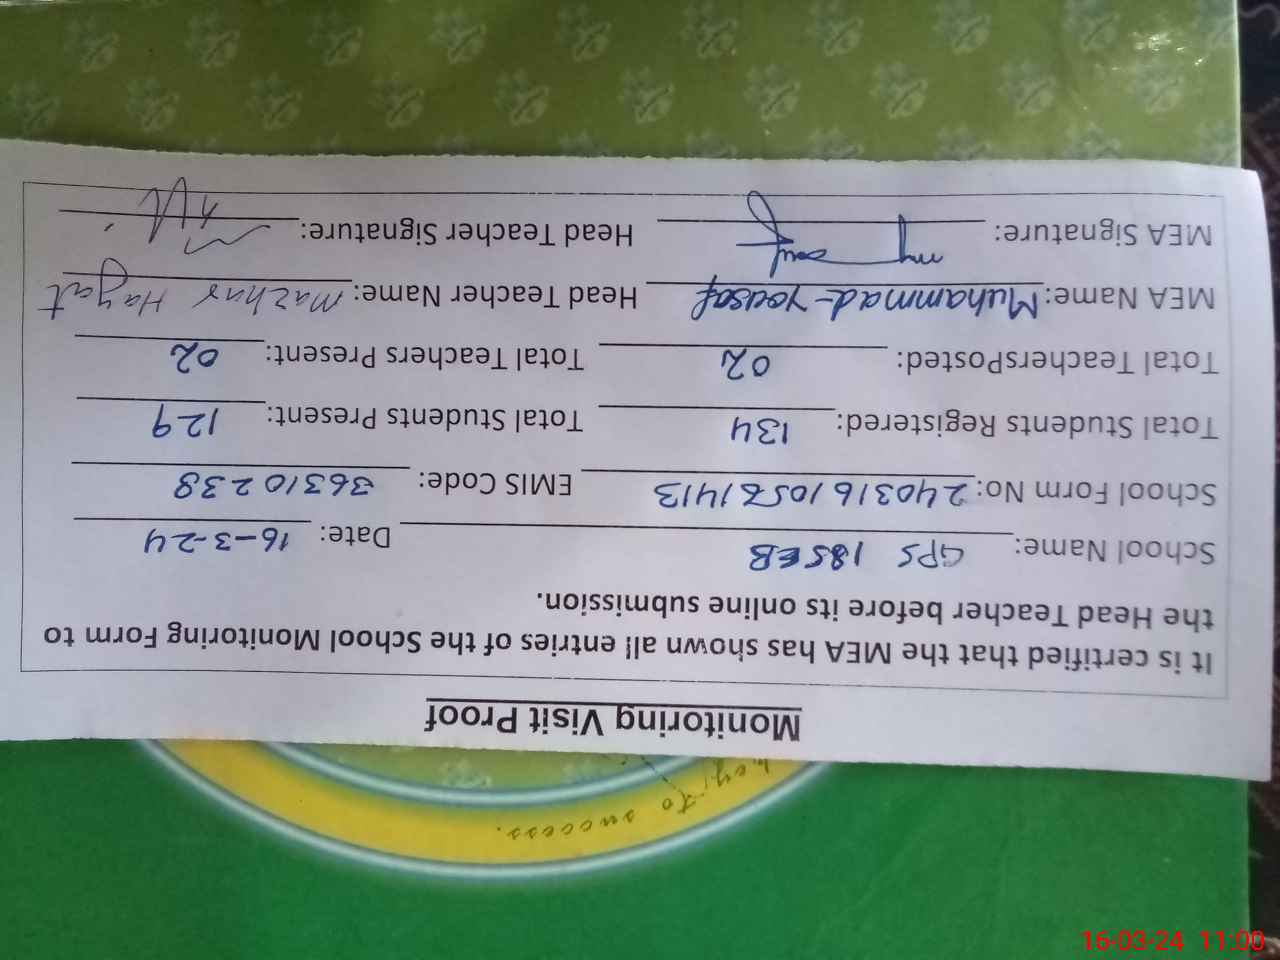 Monitoring Visit Proof
It is certified that the MEA has shown all entries of the School Monitoring Form to
the Head Teacher before its online submission.
School Name: GPS 185EB Date: 16-3-24
School Form No: EMIS Code: 36310238
Total Students Registered: 134 Total Students Present: 129
Total TeachersPosted: 02 Total Teachers Present: 02
MEA Name: Muhammad yousaf Head Teacher Name: Mazhar Hayat
MEA Signature: Head Teacher Signature:
key to success.
16-03-24 11:00